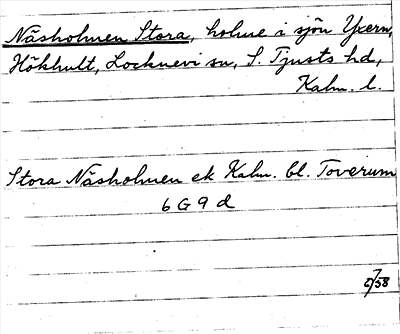 Näsholmen Stora, holme i sjön Yxern,
Hökhult, Locknevi sn, S. Tjusts hd,
Kalm. l.
Stora Näsholmen ek Kalm. bl. Toverum
6 G 9 d